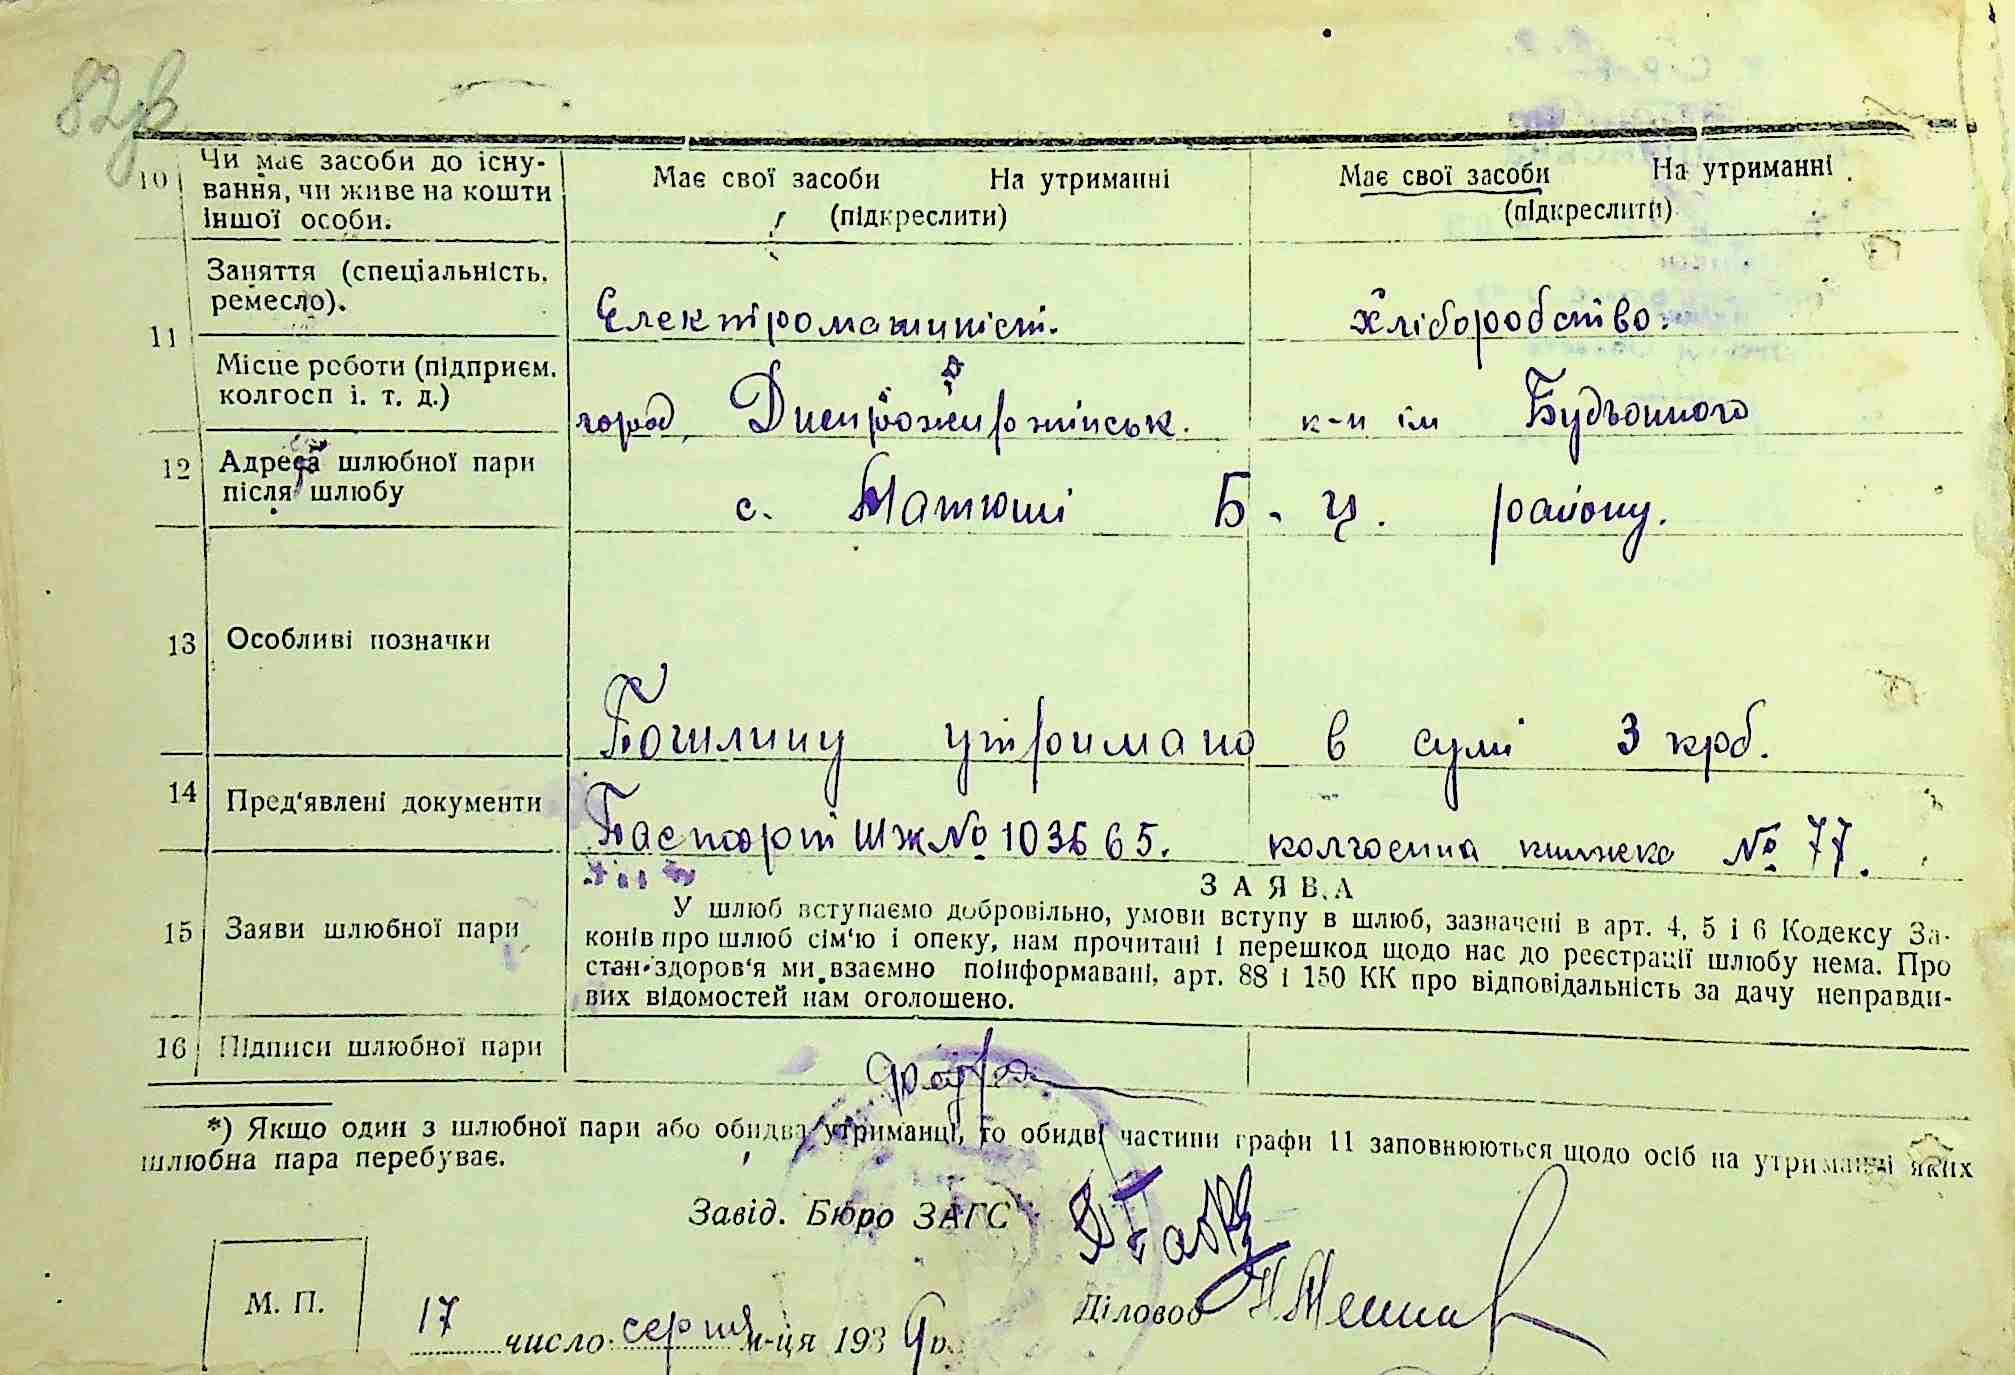 82зв
10 Чи має засоби до існу-
вання, чи живе на кошти
іншої особи.
Має свої засоби На утриманні
(підкреслити)
Має свої засоби На утриманні
(підкреслити)
11
Заняття (спеціальність,
ремесло).
Електромашиніст.
Хліборобство.
Місце роботи (підприєм.
колгосп і. т. д.)
город Днепродзержинськ.
к-п ім Будьонного
12 Адреса шлюбної пари
після шлюбу
с. Матюші Б. Ц. району.
13 Особливі позначки
Пошлину утримано в сумі 3 крб.
14 Пред'явлені документи
Паспорт ШЖ № 103665.
колгоспна книжка № 77.
15 Заяви шлюбної пари
ЗАЯВА
У шлюб вступаємо добровільно, умови вступу в шлюб, зазначені в арт. 4, 5 і 6 Кодексу За-
конів про шлюб сім'ю і опеку, нам прочитані і перешкод щодо нас до реєстрації шлюбу нема. Про
стан здоров'я ми взаємно поінформавані, арт. 88 і 150 КК про відповідальність за дачу неправди-
вих відомостей нам оголошено.
16 Підписи шлюбної пари
*) Якщо один з шлюбної пари або обидва утриманці, то обидві частини графи 11 заповнюються щодо осіб на утриманні яких
шлюбна пара перебуває.
Завід. Бюро ЗАГС
М. П.
Діловод
17 число серпня м-ця 1939 р.